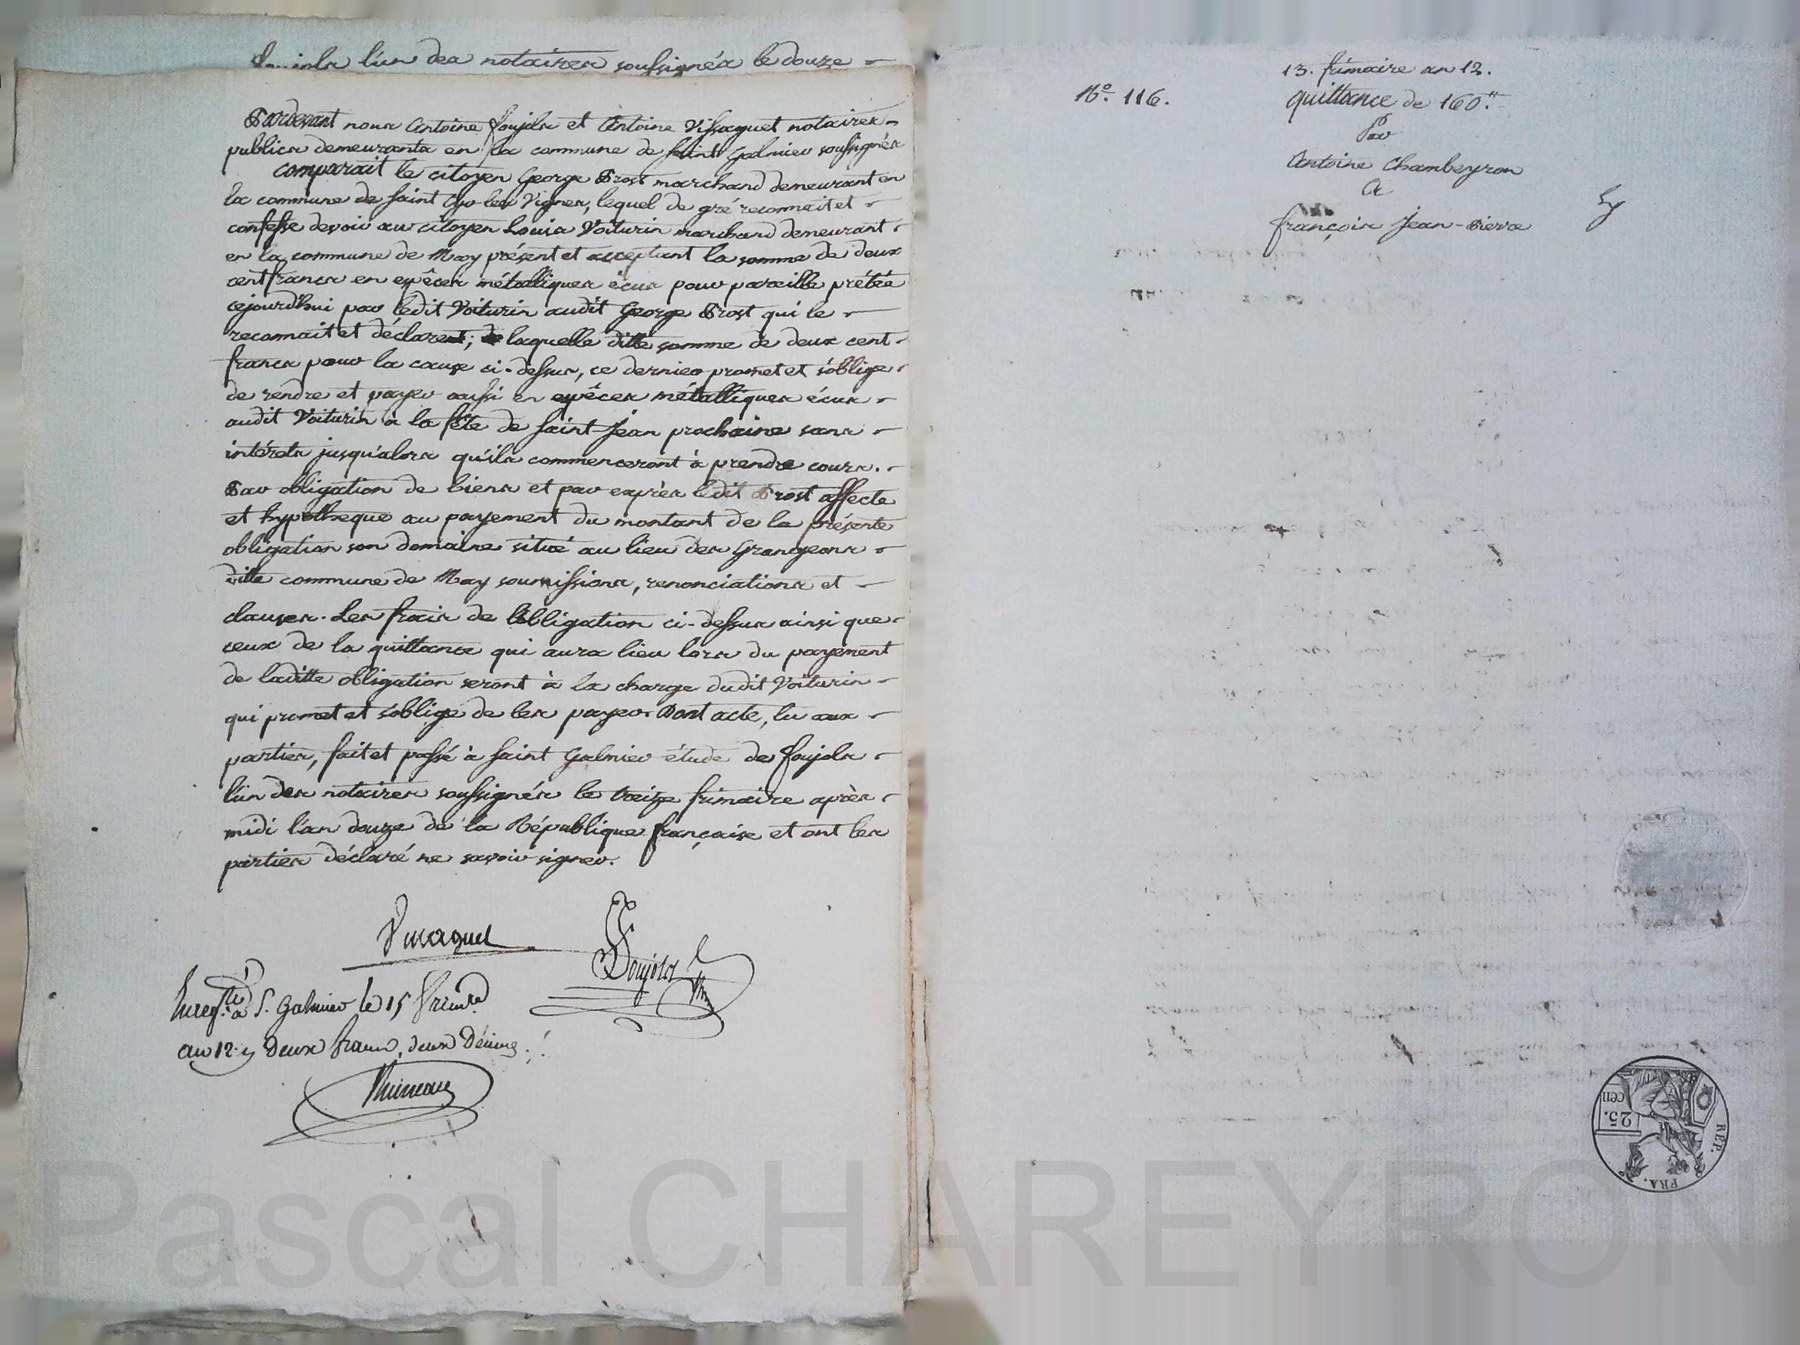 l'un des notaires soussignés le douze
Pardevant nous Antoine Foujols et Antoine Vissaguet notaires
publics demeurants en la commune de Saint Galmier soussignés
comparait le citoyen George Prost marchand demeurant en
la commune de Saint Cyr les Vignes, lequel de gré reconnait et
confesse devoir au citoyen Louis Voiturin marchand demeurant
en la commune de May présent et acceptant la somme de deux
cent francs en espêces métalliques écus pour pareille prêtée
cejourd'hui par ledit Voiturin audit George Prost qui le
reconnait et déclare; laquelle ditte somme de deux cent
francs pour la cause ci-dessus, ce dernier promet et s'oblige
de rendre et payer aussi en espêces métalliques écus
audit Voiturin à la fête de Saint-Jean prochaine sans
intérets jusqu'alors qu'ils commenceront à prendre cours.
Par obligation de biens et par exprès ledit Prost affecte
et hypotheque au payement du montant de la présente
obligation son domaine situé au lieu des Grangeons
ditte commune de May soumissions, renonciations et
clauses. Les frais de l'obligation ci-dessus ainsi que
ceux de la quittance qui aura lieu lors du payement
de laditte obligation seront à la charge dudit Voiturin
qui promet et s'oblige de les payer. Dont acte, lu aux
parties, fait et passé à Saint Galmier étude de Foujols
l'un des notaires soussignés le treize frimaire après
midi l'an douze de la République française et ont les
parties déclaré ne savoir signer.
Vissaguet
Foujols
Enreg.tré à S. Galmier le 15 frim.re
an 12 deux francs, deux décimes
N.o 116.
13. frimaire an 12.
quittance de 160.#
Par
Antoine Chambeyron
A
françois Jean-Pierre
REP. FRA.
25. cen
Pascal CHAREYRON